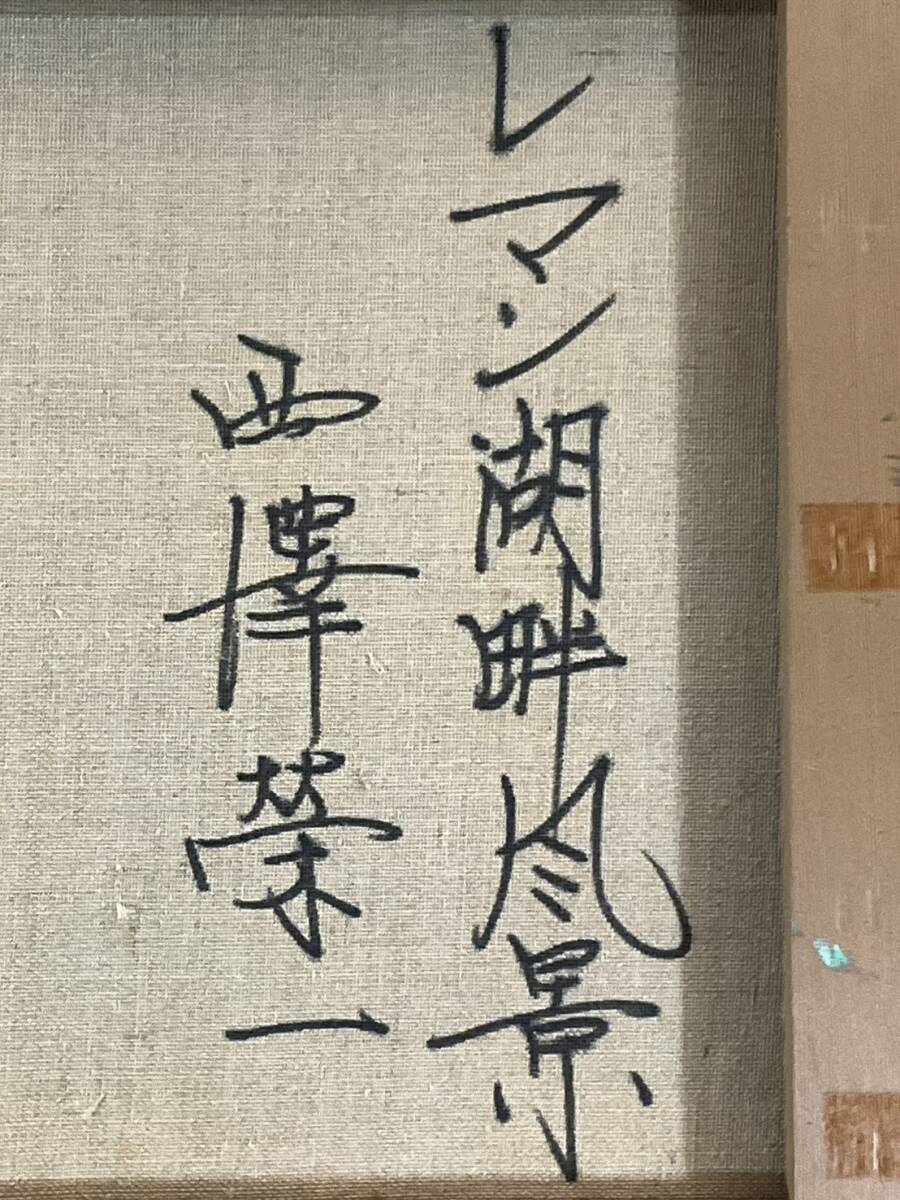 レマン湖畔風景
西澤榮一